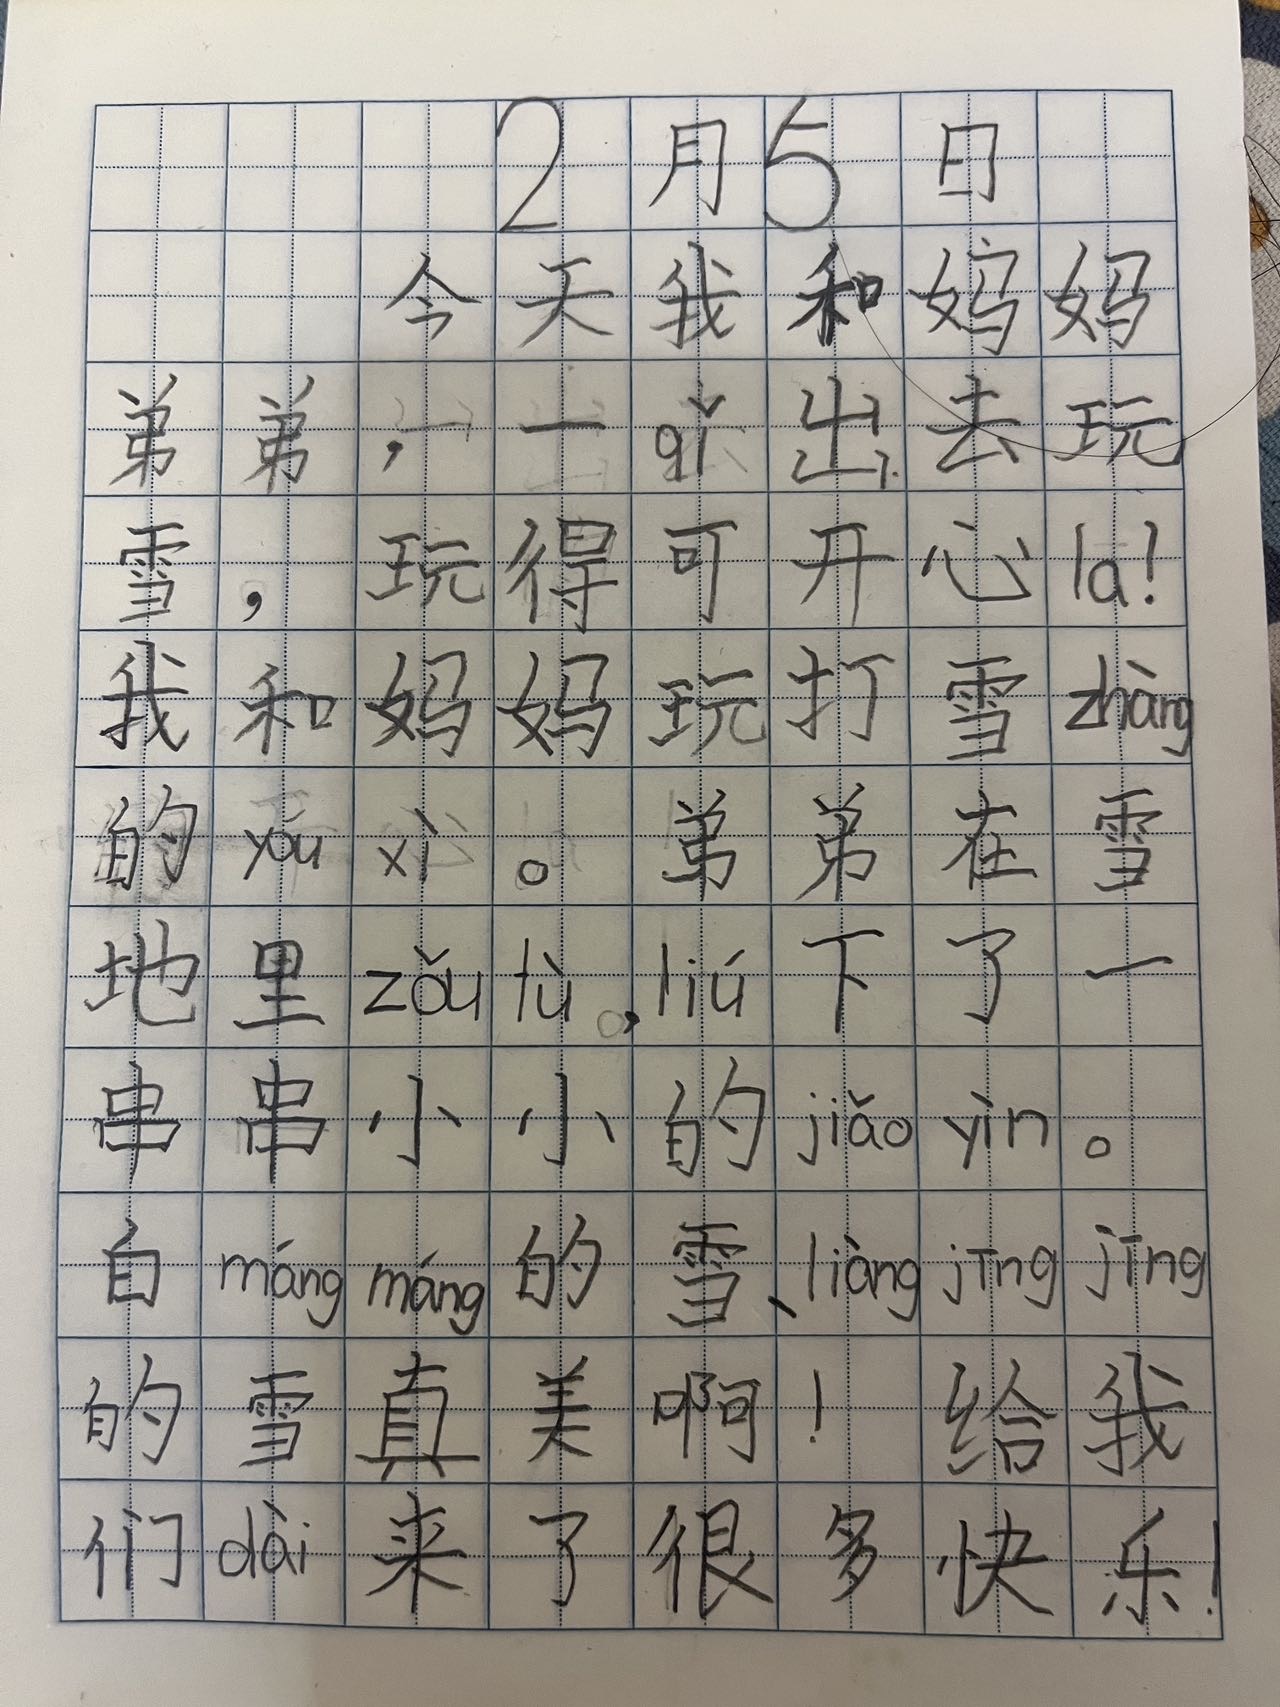 2月5日
今天我和妈妈
弟弟,一qǐ出去玩
雪,玩得可开心la!
我和妈妈玩打雪zhàng
的yóuxì。弟弟在雪
地里zǒulù,liú下了一
串串小小的jiǎoyìn。
白mángmáng的雪、liàngjīngjīng
的雪真美啊!给我
们dài来了很多快乐!